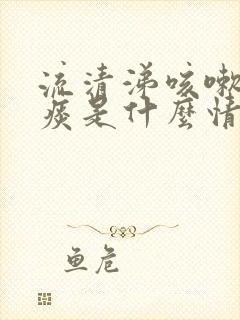 流清涕咳嗽
痰是什麼情
鱼危